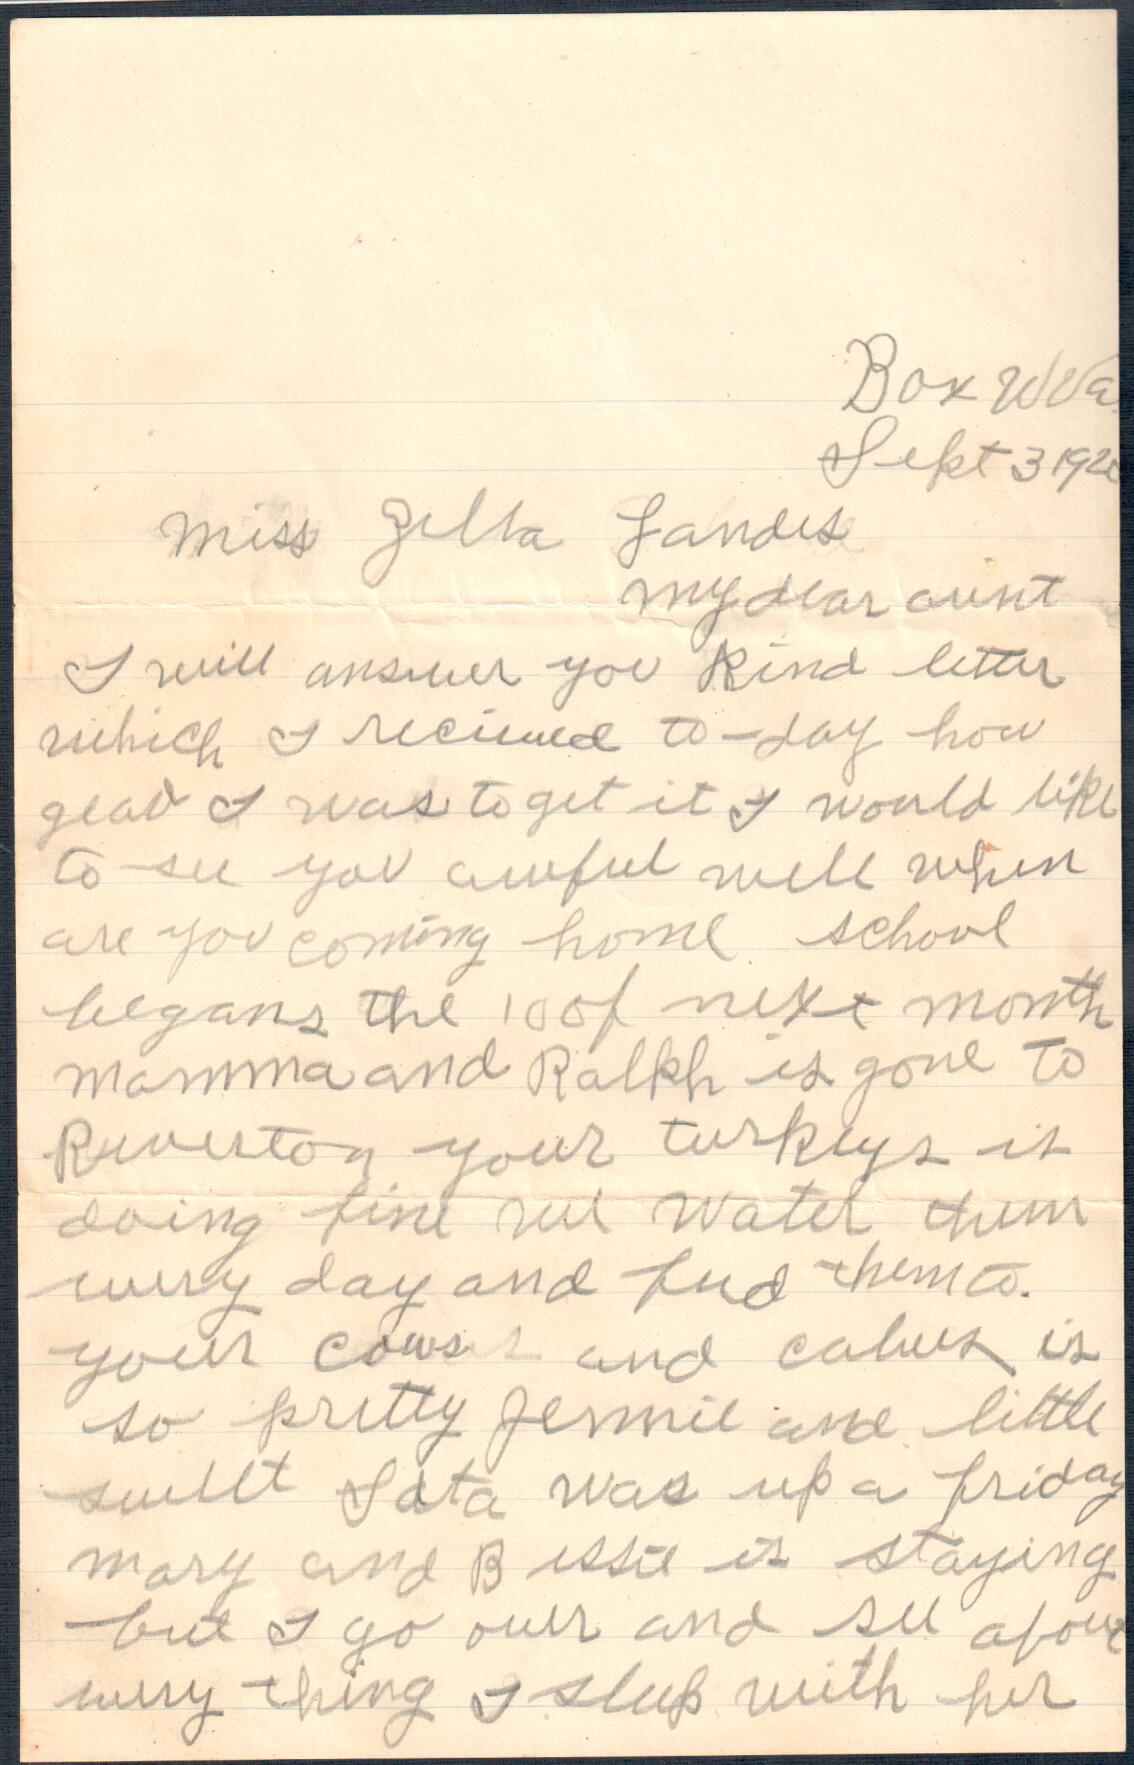 Box W Va
Sept 3 192
Miss Zella Landes
my dear aunt
I will answer you kind letter
which I recieved to-day how
glad I was to get it I would like
to see you awful well when
are you coming home school
begans the 10 of next month
mamma and Ralph is gone to
Riverton your turkeys is
doing fine we water them
every day and feed them to.
your cows and calves is
so pretty Jennie and little
was up a friday
mary and Bessie is staying
but I go over and see about
every thing I sleep with her